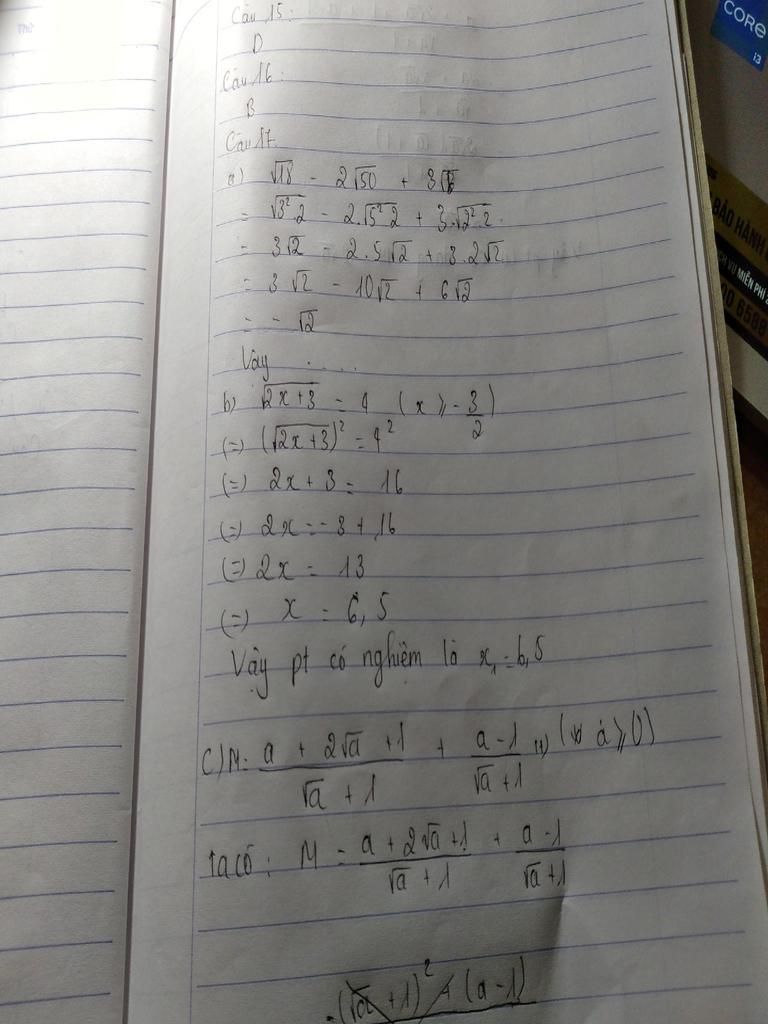 Câu 15:
D
Câu 16:
B
Câu 17
a) √18 - 2√50 + 3√8
= √3².2 - 2.√5².2 + 3.√2².2
= 3√2 - 2.5√2 + 3.2√2
= 3√2 - 10√2 + 6√2
= -√2
Vậy ....
b) √2x+3 = 4 (x ≥ -3/2)
(=) (√2x+3)² = 4²
(=) 2x + 3 = 16
(=) 2x = -3 + 16
(=) 2x = 13
(=) x = 6,5
Vậy pt có nghiệm là x₁ = 6,5
C) M = (a + 2√a + 1)/(√a + 1) + (a - 1)/(√a + 1) (∀ a ≥ 0)
Ta có: M = (a + 2√a + 1)/(√a + 1) + (a - 1)/(√a + 1)
= (√a + 1)² + (a - 1)
CORE
i3
BẢO HÀNH
DỊCH VỤ MIỄN PHÍ
6588